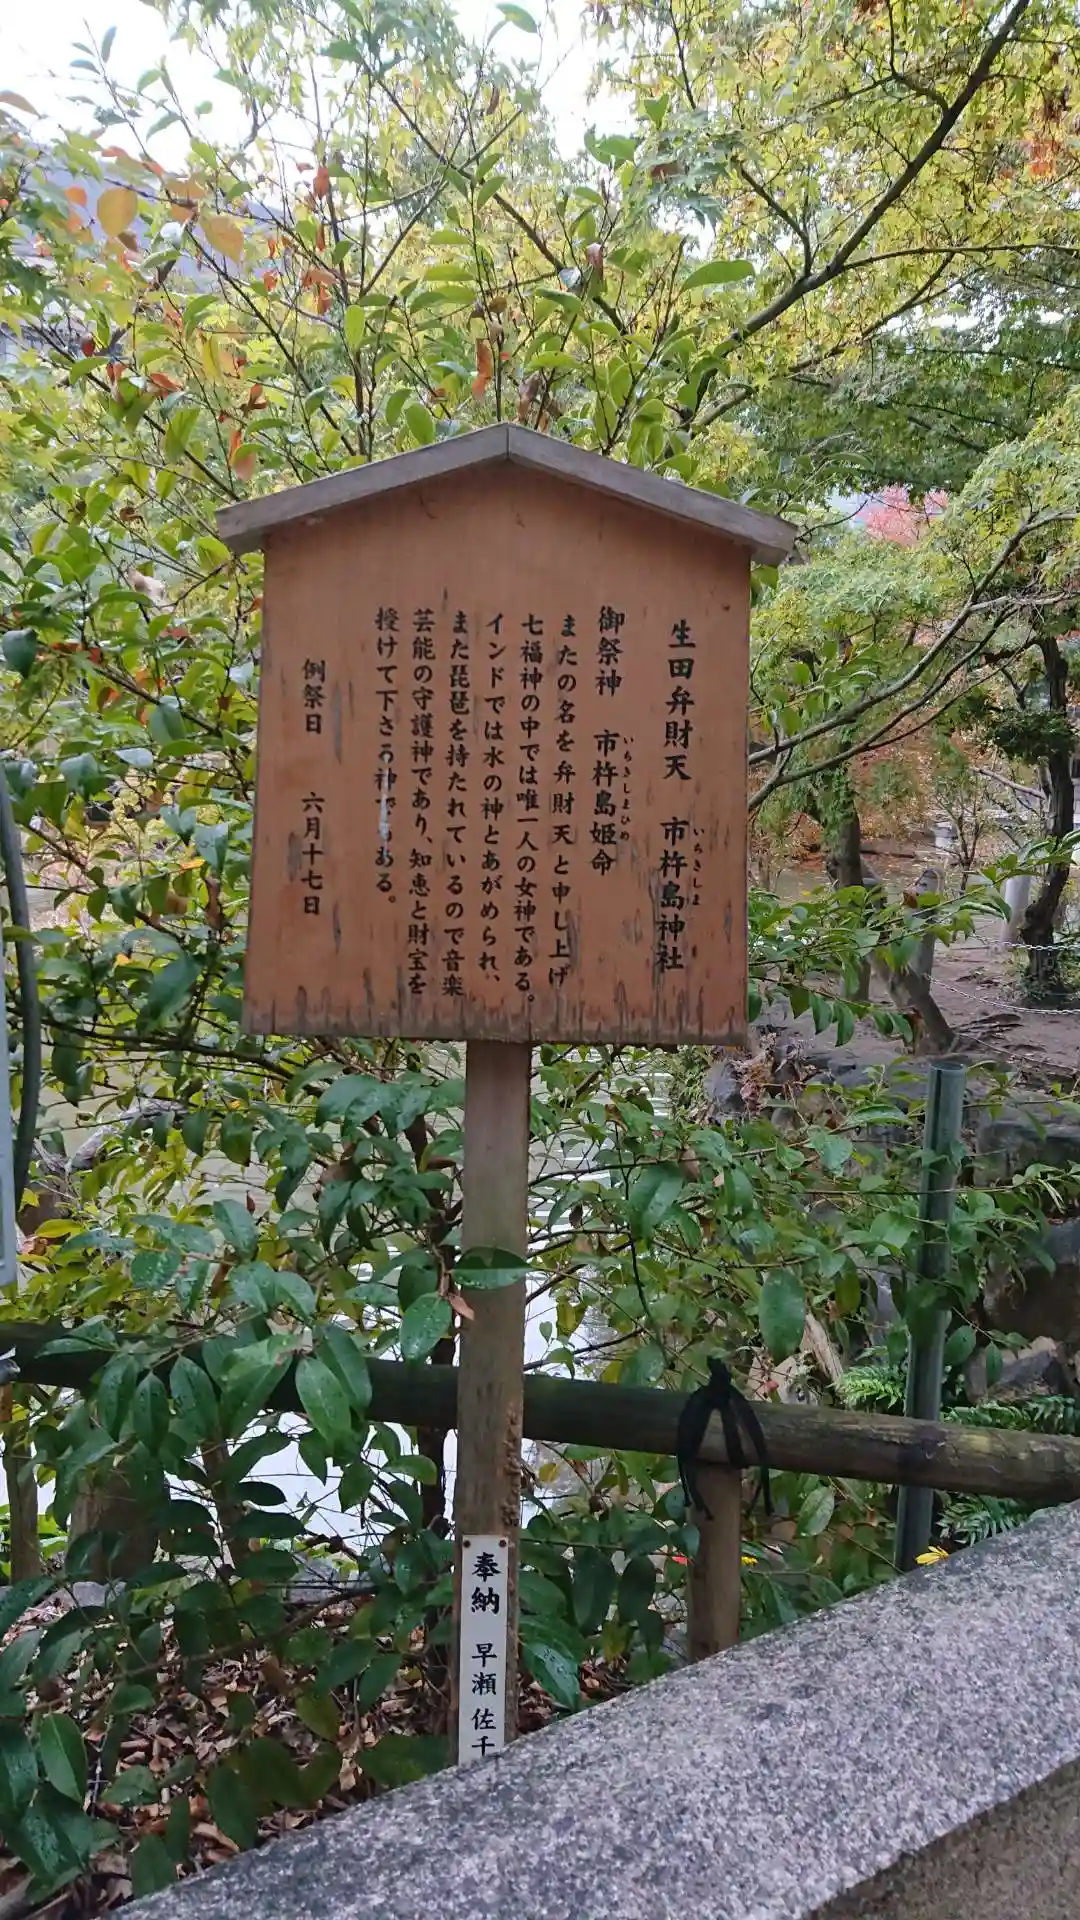 生田弁財天　市杵島神社
いちきしま
御祭神　市杵島姫命
いちきしまひめ
またの名を弁財天と申し上げ
七福神の中では唯一人の女神である。
インドでは水の神とあがめられ、
また琵琶を持たれているので音楽
芸能の守護神であり、知恵と財宝を
授けて下さる神である。
例祭日　六月十七日
奉納　早瀬佐千